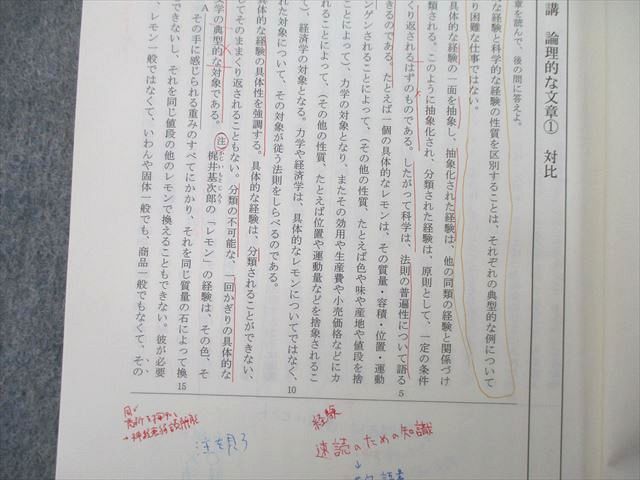 講 論理的な文章① 対比
章を読んで、後の問に答えよ。
な経験と科学的な経験の性質を区別することは、それぞれの典型的な例について
り困難な仕事ではない。
具体的な経験の一面を抽象し、抽象化された経験は、他の同類の経験と関係づけ
類される。このように抽象化され、分類された経験は、原則として、一定の条件
くり返されるはずのものである。したがって科学は、法則の普遍性について語る
5
きるのである。たとえば一個の具体的なレモンは、その質量・容積・位置・運動
ンゲンされることによって、(その他の性質、たとえば色や味や産地や値段を捨
ことによって)、力学の対象となり、またその効用や生産費や小売価格などにカ
れることによって、(その他の性質、たとえば位置や運動量などを捨象されるこ
)、経済学の対象となる。力学や経済学は、具体的なレモンについてではなく、
10
た対象について、その対象が従う法則をしらべるのである。
体的な経験の具体性を強調する。具体的な経験は、分類されることができない、
てそのままくり返されることもない。分類の不可能な、一回かぎりの具体的な
学の典型的な対象である。注 梶井基次郎の「レモン」の経験は、その色、そ
かじい もとじろう
その手に感じられる重みのすべてにかかり、それを同じ質量の石によって換
15
できないし、それを同じ値段の他のレモンで換えることもできない。彼が必要
、レモン一般ではなくて、いわんや固体一般でも、商品一般でもなくて、その
経験
速読のための知識
↓
注を見ろ